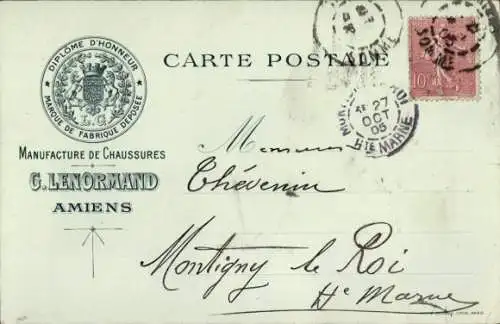 CARTE POSTALE
DIPLÔME D'HONNEUR
L.G.
MARQUE DE FABRIQUE DÉPOSÉE
MANUFACTURE DE CHAUSSURES
G. LENORMAND
AMIENS
10
27
OCT
05
HTE MARNE
SOMME
Messieurs
Thévenin
Montigny le Roi
Hte Marne